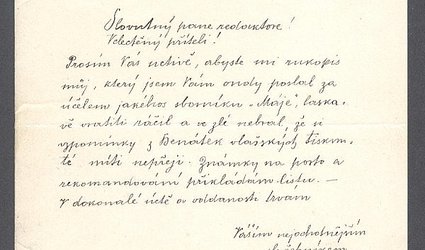 Slovutný pane redaktore!
Velectěný příteli!
Prosím Vás uctivě, abyste mi rukopis
můj, který jsem Vám ondy poslal za
účelem jakéhos sborníku „Máje“, laska-
vě vrátiti ráčil a ve zlé nebral, že si
vzpomínky z Benátek vlašských tiskem
té míti nepřeji. Známky na porto a
rekomandování přikládám listu. —
V dokonalé úctě a oddanosti trvám
Vaším nejochotnějším
služebníkem